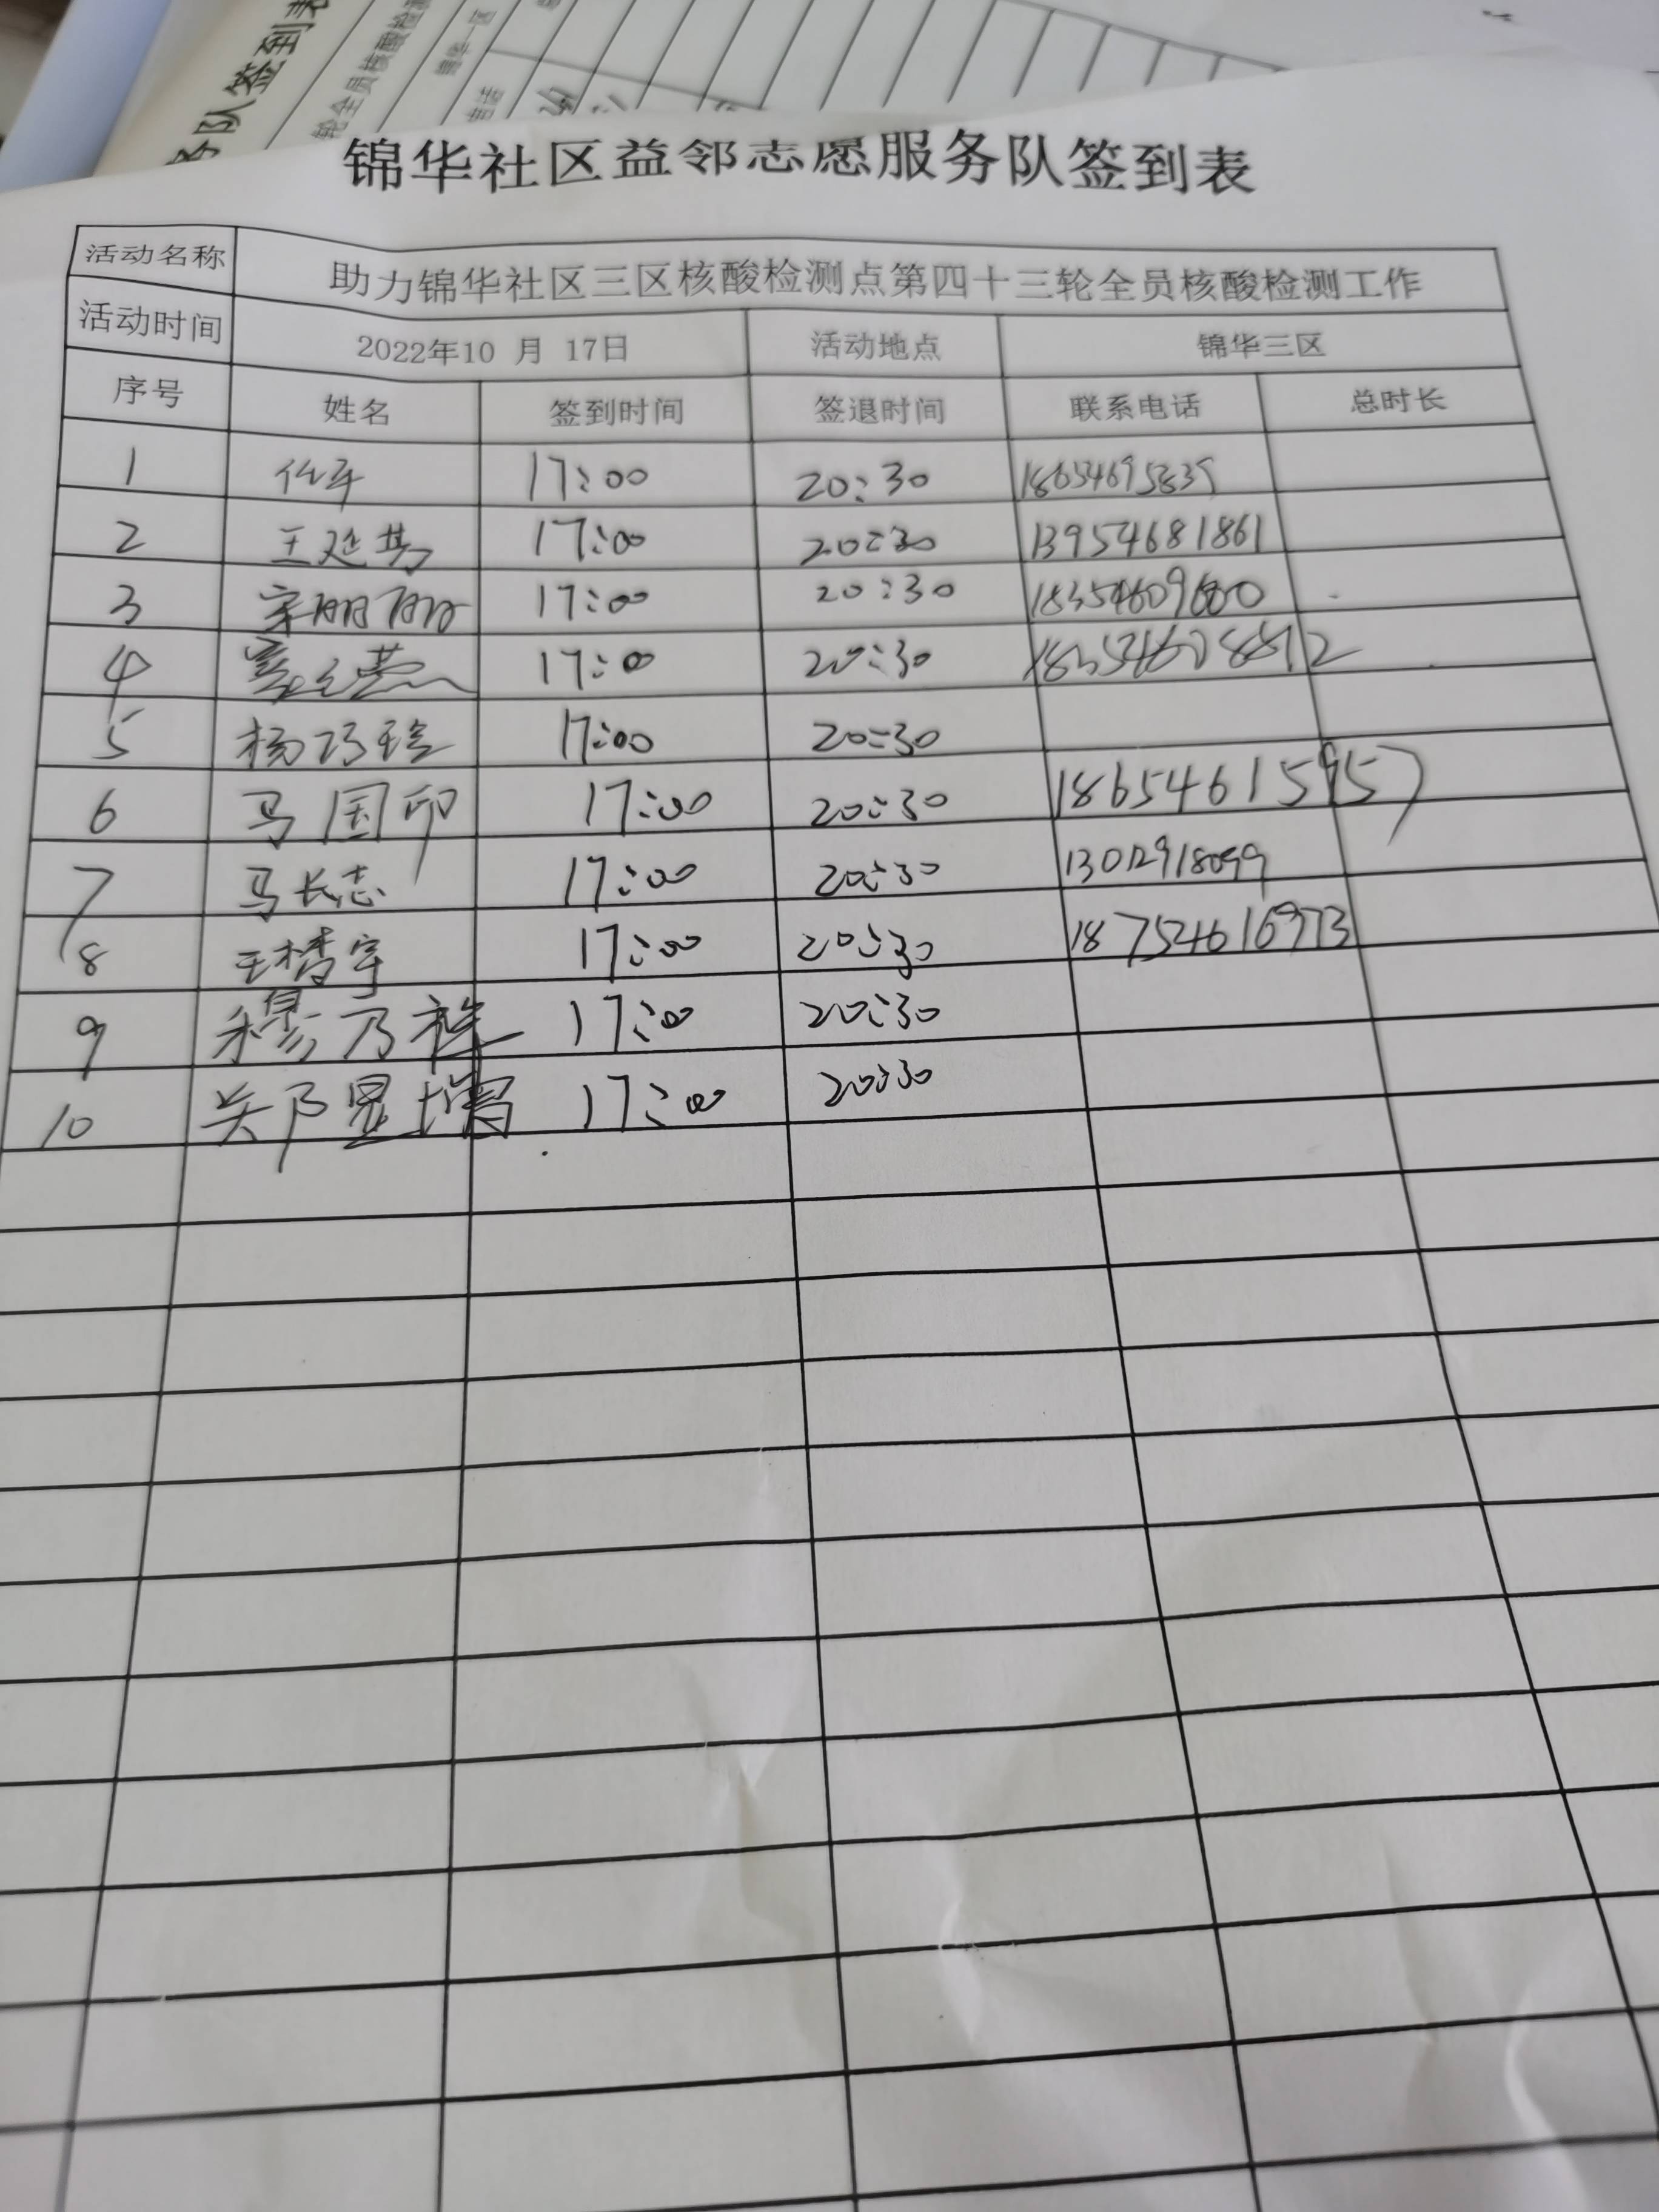 务队签到表
轮全员核酸检测
锦华一区
电话
锦华社区益邻志愿服务队签到表
活动名称 助力锦华社区三区核酸检测点第四十三轮全员核酸检测工作
活动时间 2022年10 月 17日 活动地点 锦华三区
序号 姓名 签到时间 签退时间 联系电话 总时长
1 17:00 20:30 18654695839
2 王延芬 17:00 20:30 13954681861
3 17:00 20:30
4 17:00 20:30
5 杨巧玲 17:00 20:30
6 马国印 17:00 20:30 18654615957
7 马长志 17:00 20:30
8 17:00 20:30 18754616973
9 穆乃 17:00 20:30
10 关户显增 17:00 20:30